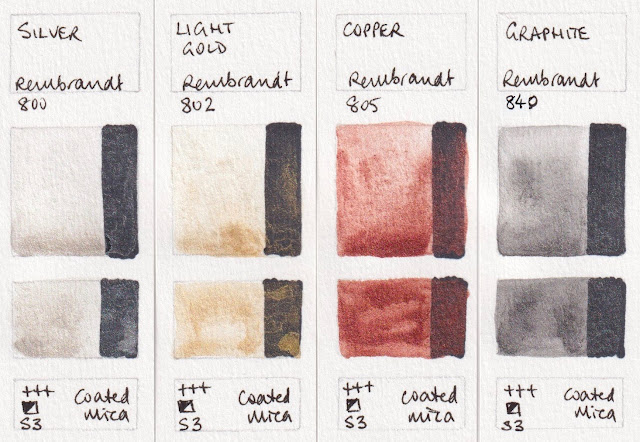 SILVER
Rembrandt
800
+++ Coated
Mica
S3
LIGHT
GOLD
Rembrandt
802
+++ Coated
Mica
S3
COPPER
Rembrandt
805
+++ Coated
Mica
S3
GRAPHITE
Rembrandt
840
+++ Coated
Mica
S3